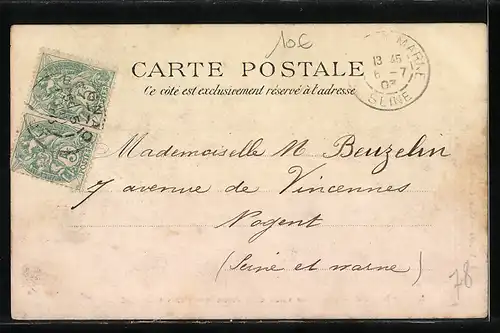 106
CARTE POSTALE
Ce côté est exclusivement réservé à l'adresse
MARNE
13 45
6 -7
03
SEINE
Mademoiselle M Beuzelin
7 avenue de Vincennes
Nogent
(Seine et marne)
78